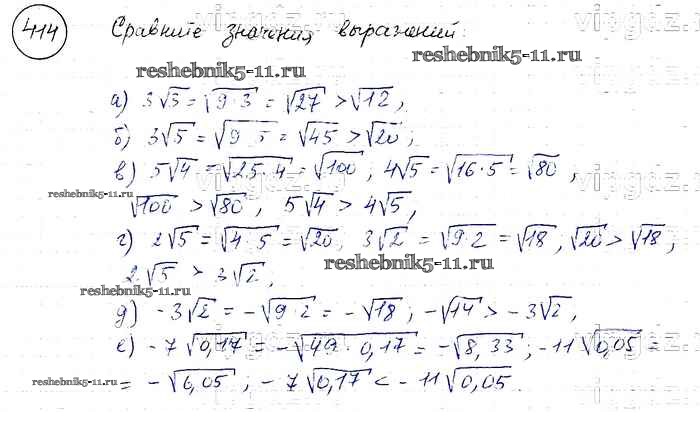 414 Сравните значения выражений:
vipgdz.ru
reshebnik5-11.ru
reshebnik5-11.ru
а) 3√3 = √9·3 = √27 > √12,
б) 3√5 = √9·5 = √45 > √20;
в) 5√4 = √25·4 = √100, 4√5 = √16·5 = √80,
reshebnik5-11.ru
√100 > √80, 5√4 > 4√5,
г) 2√5 = √4·5 = √20, 3√2 = √9·2 = √18, √20 > √18,
reshebnik5-11.ru
2√5 > 3√2,
reshebnik5-11.ru
д) -3√2 = -√9·2 = -√18; -√14 > -3√2,
е) -7√0,17 = -√49·0,17 = -√8,33; -11√0,05 =
reshebnik5-11.ru
= -√6,05; -7√0,17 < -11√0,05.
reshebnik5-11.ru